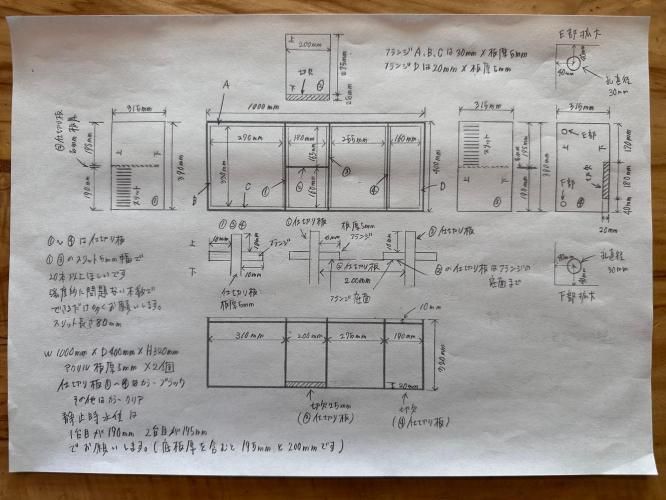 フランジA,B,Cは30mm×板厚5mm
フランジDは20mm×板厚5mm
E部拡大
上
200mm
切欠
下
②
A
1000mm
315mm
②仕切り板
5mm 板厚
195mm
190mm
390mm
上
下
スリット
290mm
180mm
255mm
160mm
330mm
165mm
400mm
①
②
③
④
B
C
D
315mm
上
下
スリット
5mm
195mm
190mm
390mm
315mm
E部
上
下
切欠
F部
④
170mm
180mm
40mm
20mm
40mm
孔直径
30mm
①③④
上
下
10mm
フランジ
10mm
仕切り板
板厚5mm
①仕切り板
板厚5mm
フランジ
②仕切り板
200mm
フランジ底面
10mm
③仕切り板
②の仕切り板はフランジの
底面まで
孔直径
30mm
F部拡大
①〜④は仕切り板
①③のスリット5mm幅で
20本以上ほしいです
強度的に問題ない本数で
できるだけ多くお願いします。
スリット長さ80mm
10mm
310mm
200mm
275mm
190mm
320mm
切欠25mm
(②仕切り板)
20mm
切欠
(④仕切り板)
W1000mm×D400mm×H320mm
アクリル板厚5mm ×2個
仕切り板①〜④はカラーブラック
その他はカラークリア
静止時水位は
1台目が190mm 2台目が195mm
でお願いします。(底板厚を含むと195mmと200mmです)